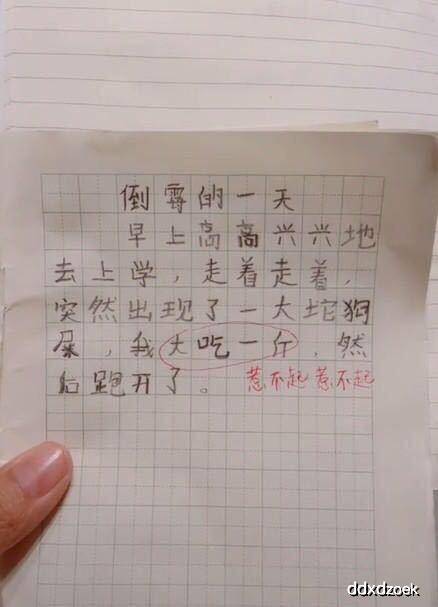 倒霉的一天
早上高高兴兴地
去上学，走着走着，
突然出现了一大坨狗
屎，我大吃一斤，然
后跑开了。
惹不起惹不起
ddxdzoek